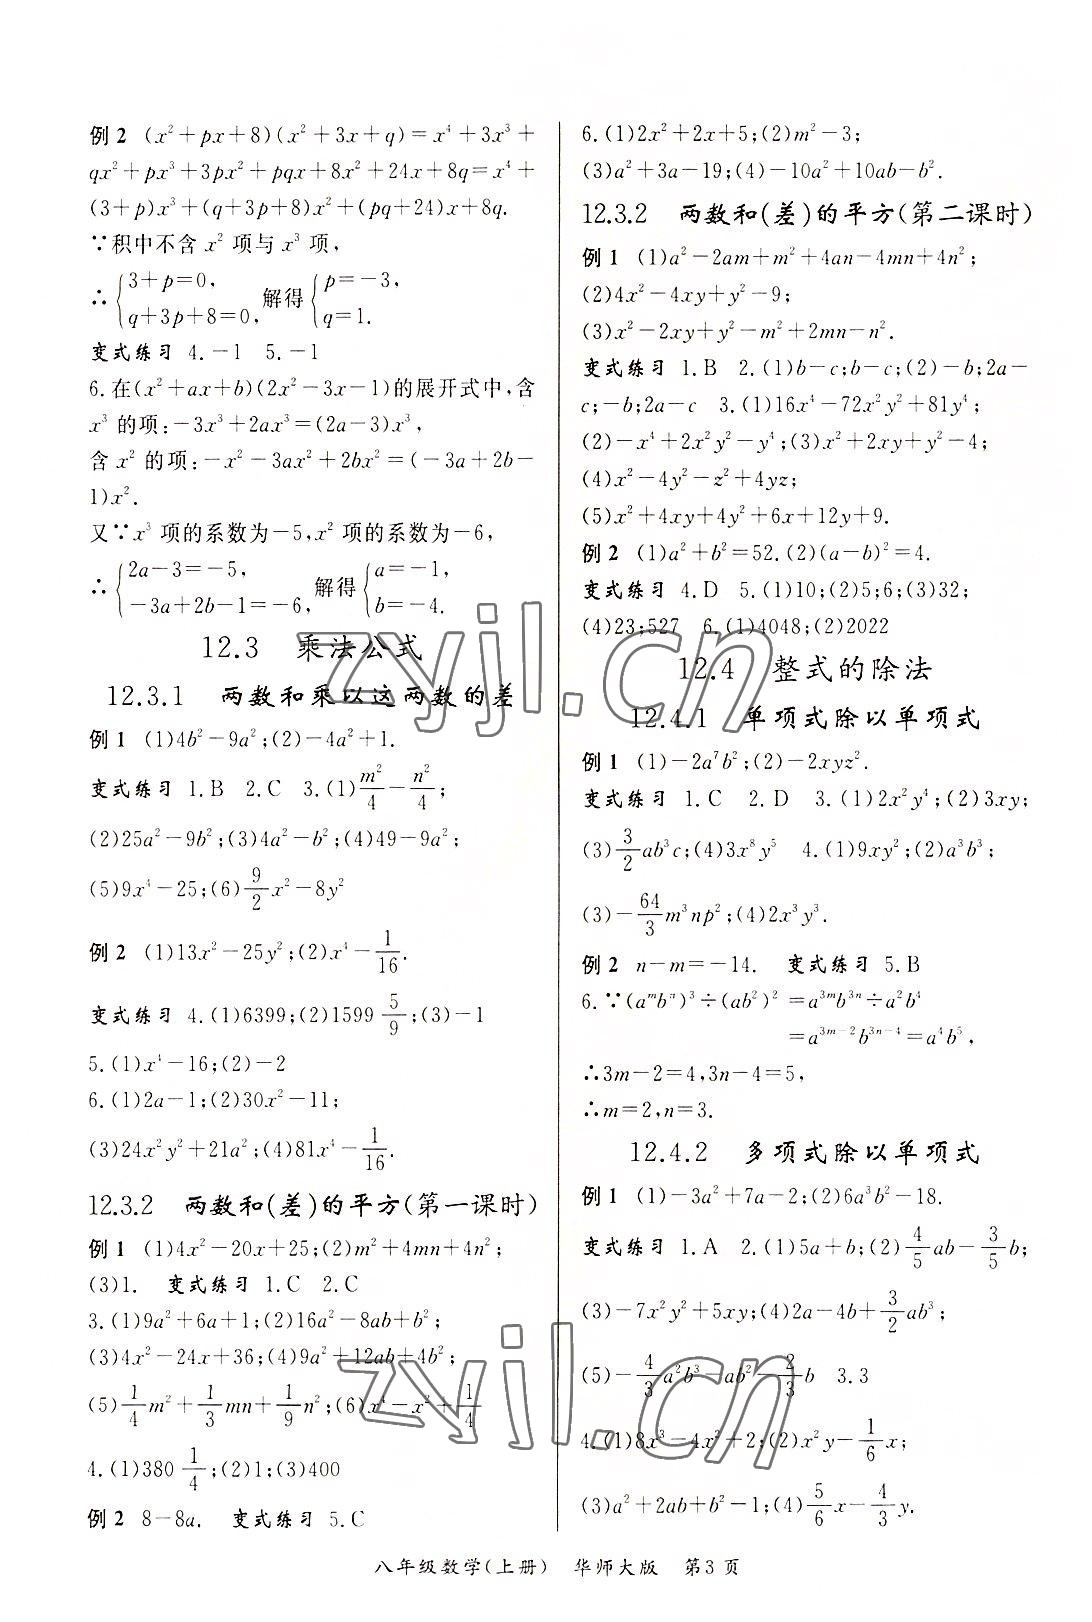 例2 (x²+px+8)(x²+3x+q)=x⁴+3x³+
qx²+px³+3px²+pqx+8x²+24x+8q=x⁴+
(3+p)x³+(q+3p+8)x²+(pq+24)x+8q.
∵积中不含 x² 项与 x³ 项,
∴ {3+p=0, q+3p+8=0, 解得 {p=-3, q=1.
变式练习 4.-1 5.-1
6.在(x²+ax+b)(2x²-3x-1)的展开式中,含
x³ 的项:-3x³+2ax³=(2a-3)x³,
含 x² 的项:-x²-3ax²+2bx²=(-3a+2b-
1)x².
又∵x³ 项的系数为-5,x² 项的系数为-6,
∴ {2a-3=-5, -3a+2b-1=-6, 解得 {a=-1, b=-4.
12.3 乘法公式
12.3.1 两数和乘以这两数的差
例1 (1)4b²-9a²;(2)-4a²+1.
变式练习 1.B 2.C 3.(1)m²/4-n²/4;
(2)25a²-9b²;(3)4a²-b²;(4)49-9a²;
(5)9x⁴-25;(6)9/2x²-8y²
例2 (1)13x²-25y²;(2)x⁴-1/16.
变式练习 4.(1)6399;(2)1599 5/9;(3)-1
5.(1)x⁴-16;(2)-2
6.(1)2a-1;(2)30x²-11;
(3)24x²y²+21a²;(4)81x⁴-1/16.
12.3.2 两数和(差)的平方(第一课时)
例1 (1)4x²-20x+25;(2)m²+4mn+4n²;
(3)1. 变式练习 1.C 2.C
3.(1)9a²+6a+1;(2)16a²-8ab+b²;
(3)4x²-24x+36;(4)9a²+12ab+4b²;
(5)1/4m²+1/3mn+1/9n²;(6)x⁴-x²+1/4
4.(1)380 1/4;(2)1;(3)400
例2 8-8a. 变式练习 5.C
6.(1)2x²+2x+5;(2)m²-3;
(3)a²+3a-19;(4)-10a²+10ab-b².
12.3.2 两数和(差)的平方(第二课时)
例1 (1)a²-2am+m²+4an-4mn+4n²;
(2)4x²-4xy+y²-9;
(3)x²-2xy+y²-m²+2mn-n².
变式练习 1.B 2.(1)b-c;b-c;(2)-b;2a-
c;-b;2a-c 3.(1)16x⁴-72x²y²+81y⁴;
(2)-x⁴+2x²y²-y⁴;(3)x²+2xy+y²-4;
(4)x²-4y²-z²+4yz;
(5)x²+4xy+4y²+6x+12y+9.
例2 (1)a²+b²=52.(2)(a-b)²=4.
变式练习 4.D 5.(1)10;(2)5;6;(3)32;
(4)23;527 6.(1)4048;(2)2022
12.4 整式的除法
12.4.1 单项式除以单项式
例1 (1)-2a⁷b²;(2)-2xyz².
变式练习 1.C 2.D 3.(1)2x²y⁴;(2)3xy;
(3)3/2ab³c;(4)3x⁸y⁵ 4.(1)9xy²;(2)a³b³;
(3)-64/3m³np²;(4)2x³y³.
例2 n-m=-14. 变式练习 5.B
6.∵(aᵐbⁿ)³÷(ab²)²=a³ᵐb³ⁿ÷a²b⁴
=a³ᵐ⁻²b³ⁿ⁻⁴=a⁴b⁵,
∴3m-2=4,3n-4=5,
∴m=2,n=3.
12.4.2 多项式除以单项式
例1 (1)-3a²+7a-2;(2)6a³b²-18.
变式练习 1.A 2.(1)5a+b;(2)4/5ab-3/5b;
(3)-7x²y²+5xy;(4)2a-4b+3/2ab³;
(5)-4/3a²b³-ab²-2/3b 3.3
4.(1)8x³-4x²+2;(2)x²y-1/6x;
(3)a²+2ab+b²-1;(4)5/6x-4/3y.
八年级数学(上册) 华师大版 第3页
zyjl.cn
zyjl.cn